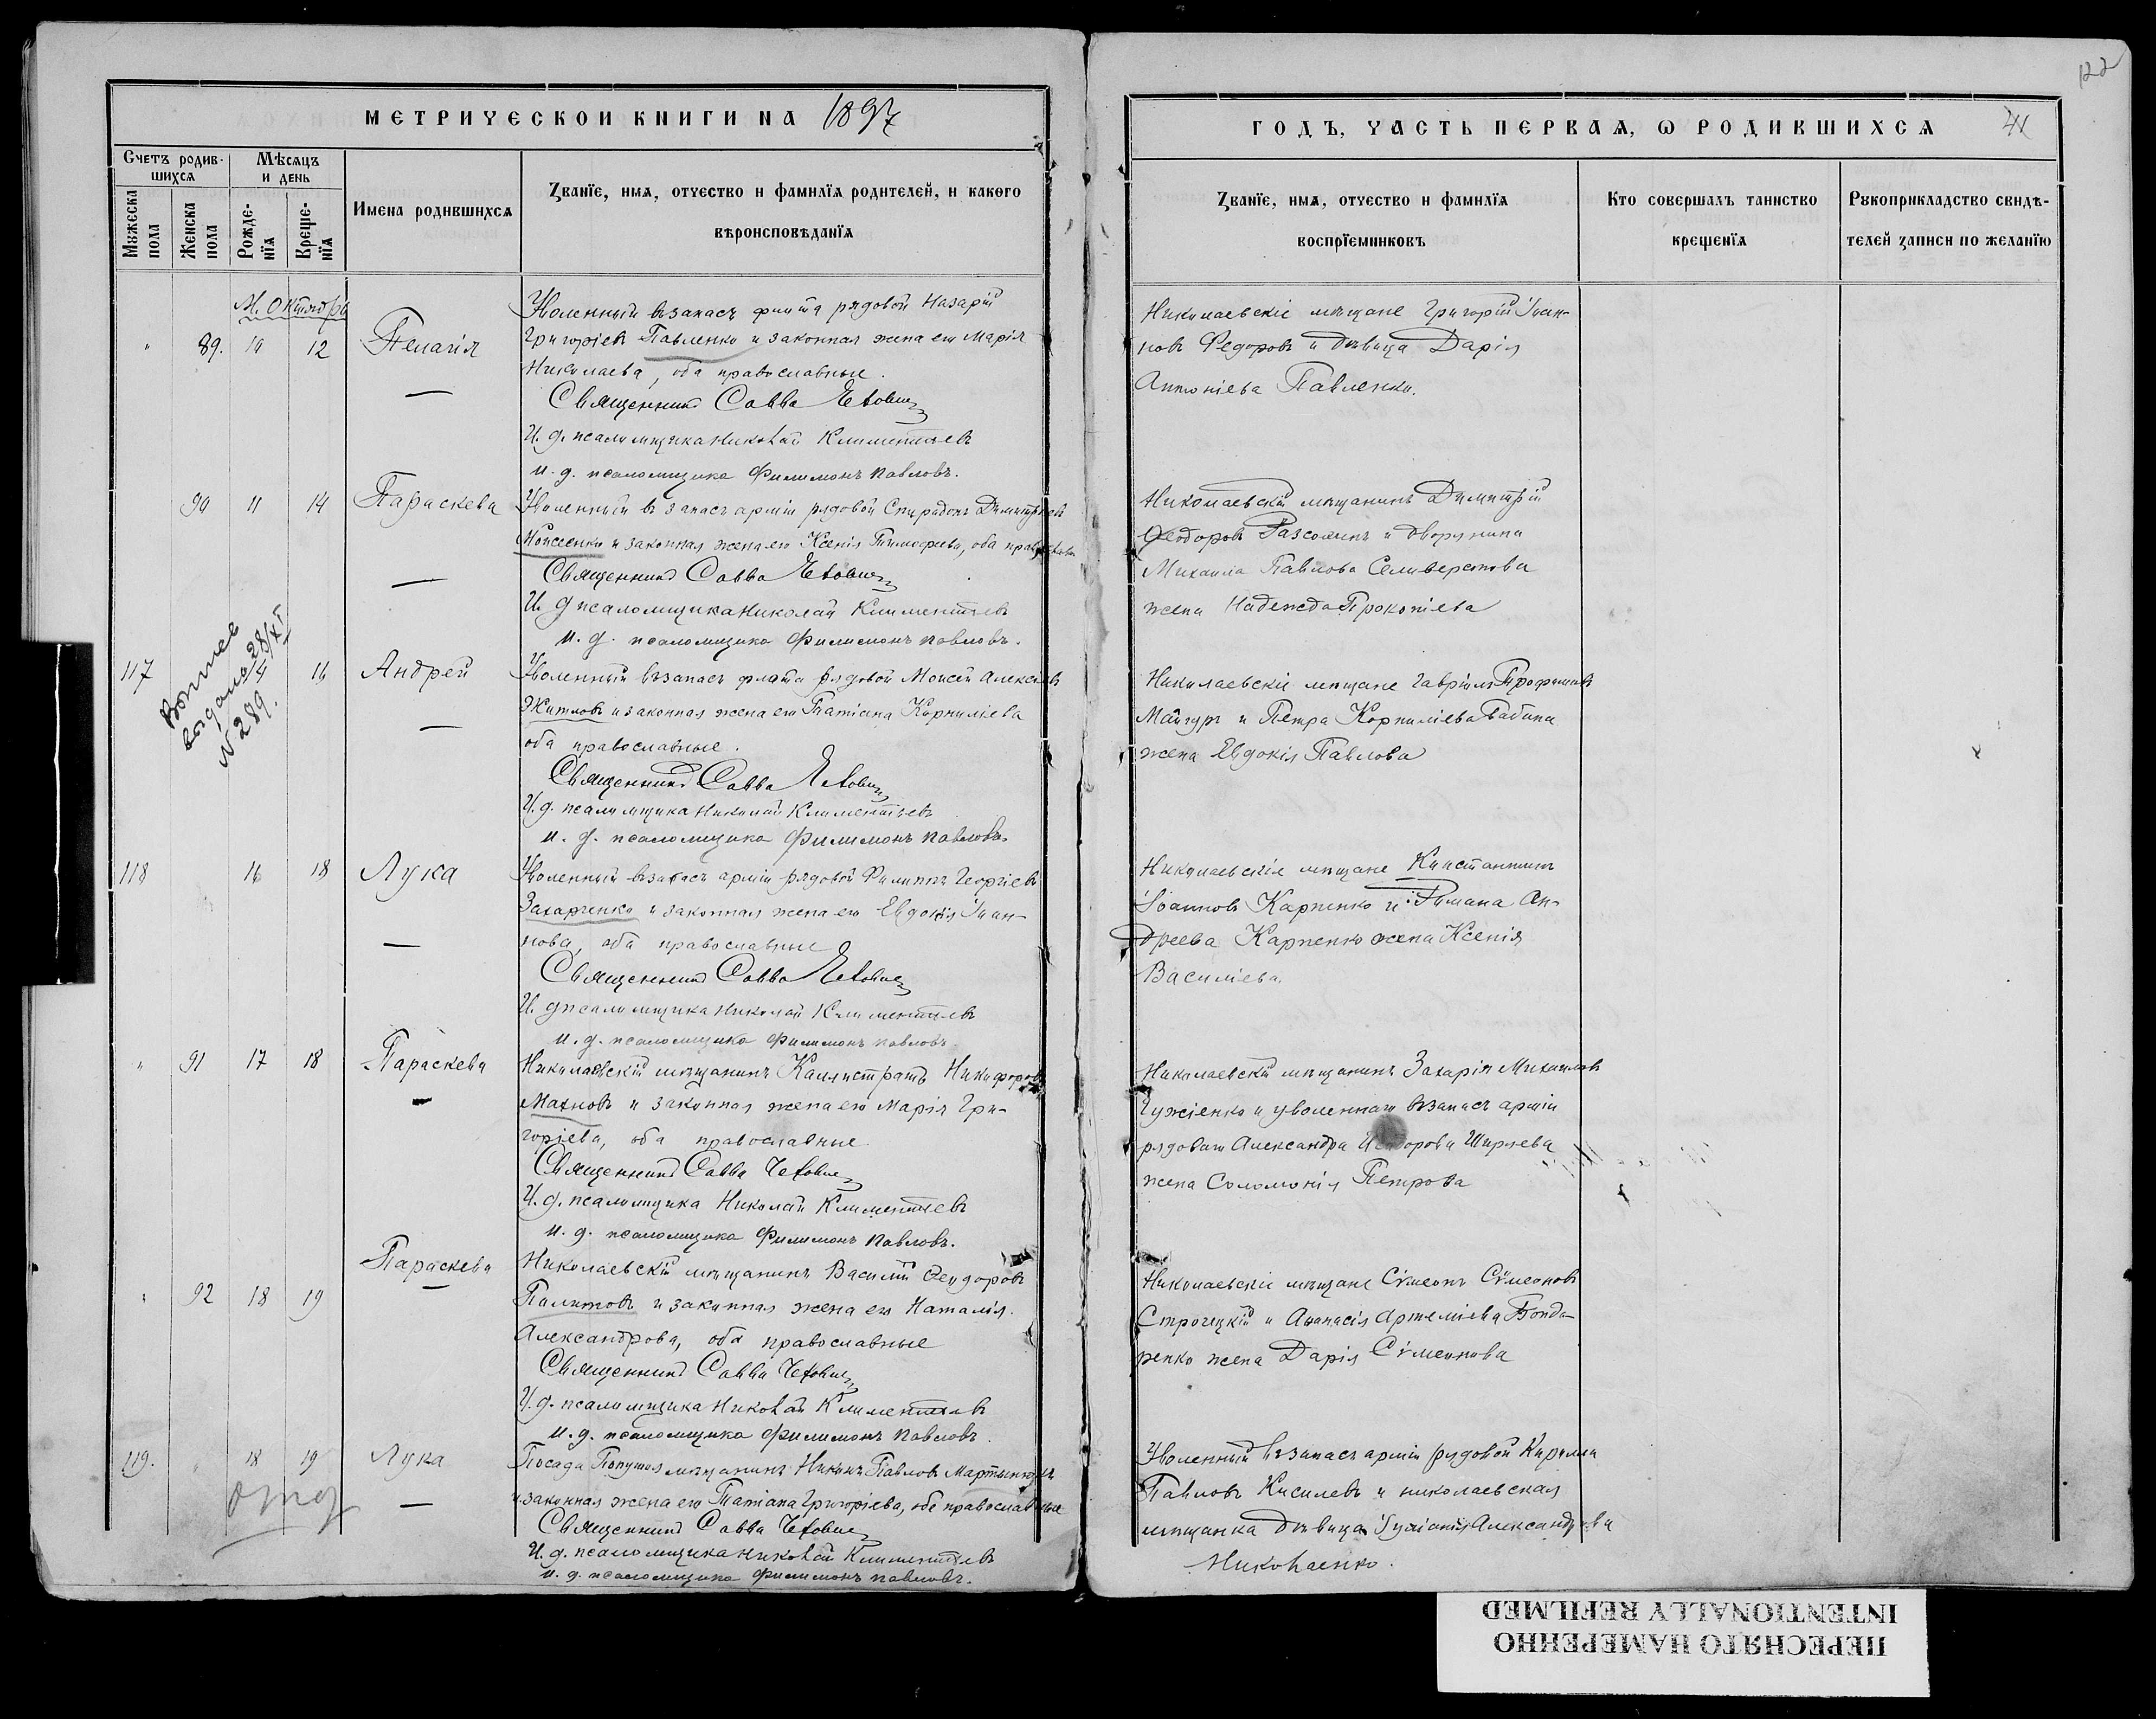 МЕТРИЧЕСКОЙ КНИГИ НА 1897
Счетъ родившихся
Мѣсяцъ и день
Мужеска пола
Женска пола
Рождения
Крещения
Имена родившихся
Званїе, имя, отчество и фамилїя родителей, и какого
вѣроисповѣданїя
М. Октябрь
" 89. 10 12 Пелагія
Уволенный въ запасъ флота рядовой Назарій
Григоріевъ Павленко и законная жена его Марія
Николаева, оба православные.
Священникъ Савва
И. д. псаломщика Николай Климентьевъ
и. д. псаломщика Филимонъ Павловъ.
90 11 14 Параскева
Уволенный въ запасъ арміи рядовой Спиридонъ Димитріевъ
Моисеенко и законная жена его Ксенія Тимофеева, оба православные
Священникъ Савва
И. д псаломщика Николай Климентьевъ
и. д. псаломщика Филимонъ Павловъ.
выдано 28/XI
№ 289.
117 14 16 Андрей
Уволенный въ запасъ флота рядовой Моисей Алексіевъ
Житловъ и законная жена его Татіана Корниліева
оба православные.
Священникъ Савва
И. д. псаломщика Николай Климентьевъ
и. д. псаломщика Филимонъ Павловъ
118 16 18 Лука
Уволенный въ запасъ арміи рядовой Филиппъ Георгіевъ
Захарченко и законная жена его Евдокія Іоан-
нова, оба православные
Священникъ Савва
И. д псаломщика Николай Климентьевъ
и. д. псаломщика Филимонъ Павловъ
" 91 17 18 Параскева
Николаевскій мѣщанинъ Каллистратъ Никифоровъ
Махновъ и законная жена его Марія Гри-
горіева, оба православные
Священникъ Савва
И. д. псаломщика Николай Климентьевъ
и. д. псаломщика Филимонъ Павловъ.
" 92 18 19 Параскева
Николаевскій мѣщанинъ Василій Ѳеодоровъ
и законная жена его Наталія
Александрова, оба православные
Священникъ Савва
И. д. псаломщика Николай Климентьевъ
и. д. псаломщика Филимонъ Павловъ.
119. " 18 19 Лука
Посада мѣщанинъ Павловъ
и законная жена его Татіана Григоріева, оба православные
Священникъ Савва
И. д. псаломщика Николай Климентьевъ
и. д. псаломщика Филимонъ Павловъ.
122
ГОДЪ, ЧАСТЬ ПЕРВАЯ, Ѡ РОДИВШИХСЯ 41
Званїе, имя, отчество и фамилїя
воспрїемниковъ
Кто совершалъ таинство
крещенїя
Рукоприкладство свидѣ-
телей записи по желанїю
Николаевскіе мѣщане Григорій Іоан-
новъ Федоровъ и дѣвица Дарія
Антоніева Павленко.
Николаевскій мѣщанинъ Димитрій
Ѳеодоровъ и дворянина
Михаила Павлова Селиверстова
жена Надежда Прокопіева
Николаевскіе мѣщане Гавріилъ Трофимовъ
и Петра Корниліева Бабина
жена Евдокія Павлова
Николаевскіе мѣщане Константинъ
Іоанновъ Карпенко и Романа Ан-
дреева Карпенко жена Ксенія
Василіева.
Николаевскій мѣщанинъ Захарія Михаиловъ
и уволеннаго въ запасъ арміи
рядоваго Александра Исидорова Ширяева
жена Соломонія Петрова
Николаевскіе мѣщане Сѵмеонъ Сѵмеоновъ
и Аѳанасія Артеміева Бонда-
ренко жена Дарія Сѵмеонова
Уволенный въ запасъ арміи рядовой Кириллъ
Павловъ Киселевъ и николаевская
мѣщанка дѣвица Іуліанія Александрова
Николаенко.
ПЕРЕСНЯТО НАМЕРЕННО
INTENTIONALLY REFILMED